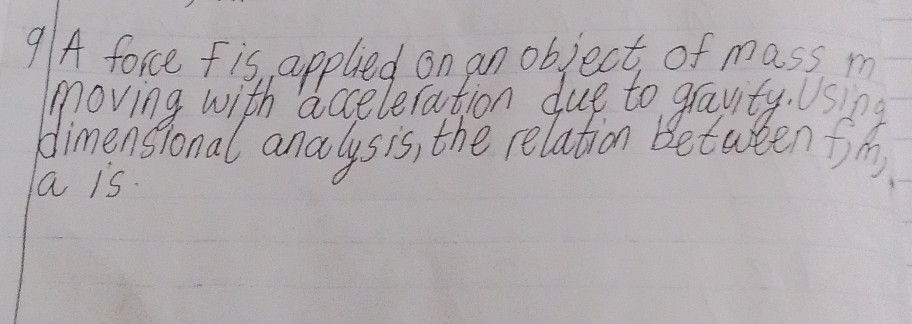 9 A force f is, applied on an object of mass m
moving with acceleration due to gravity. Using
dimensional analysis, the relation between f, m,
a is.